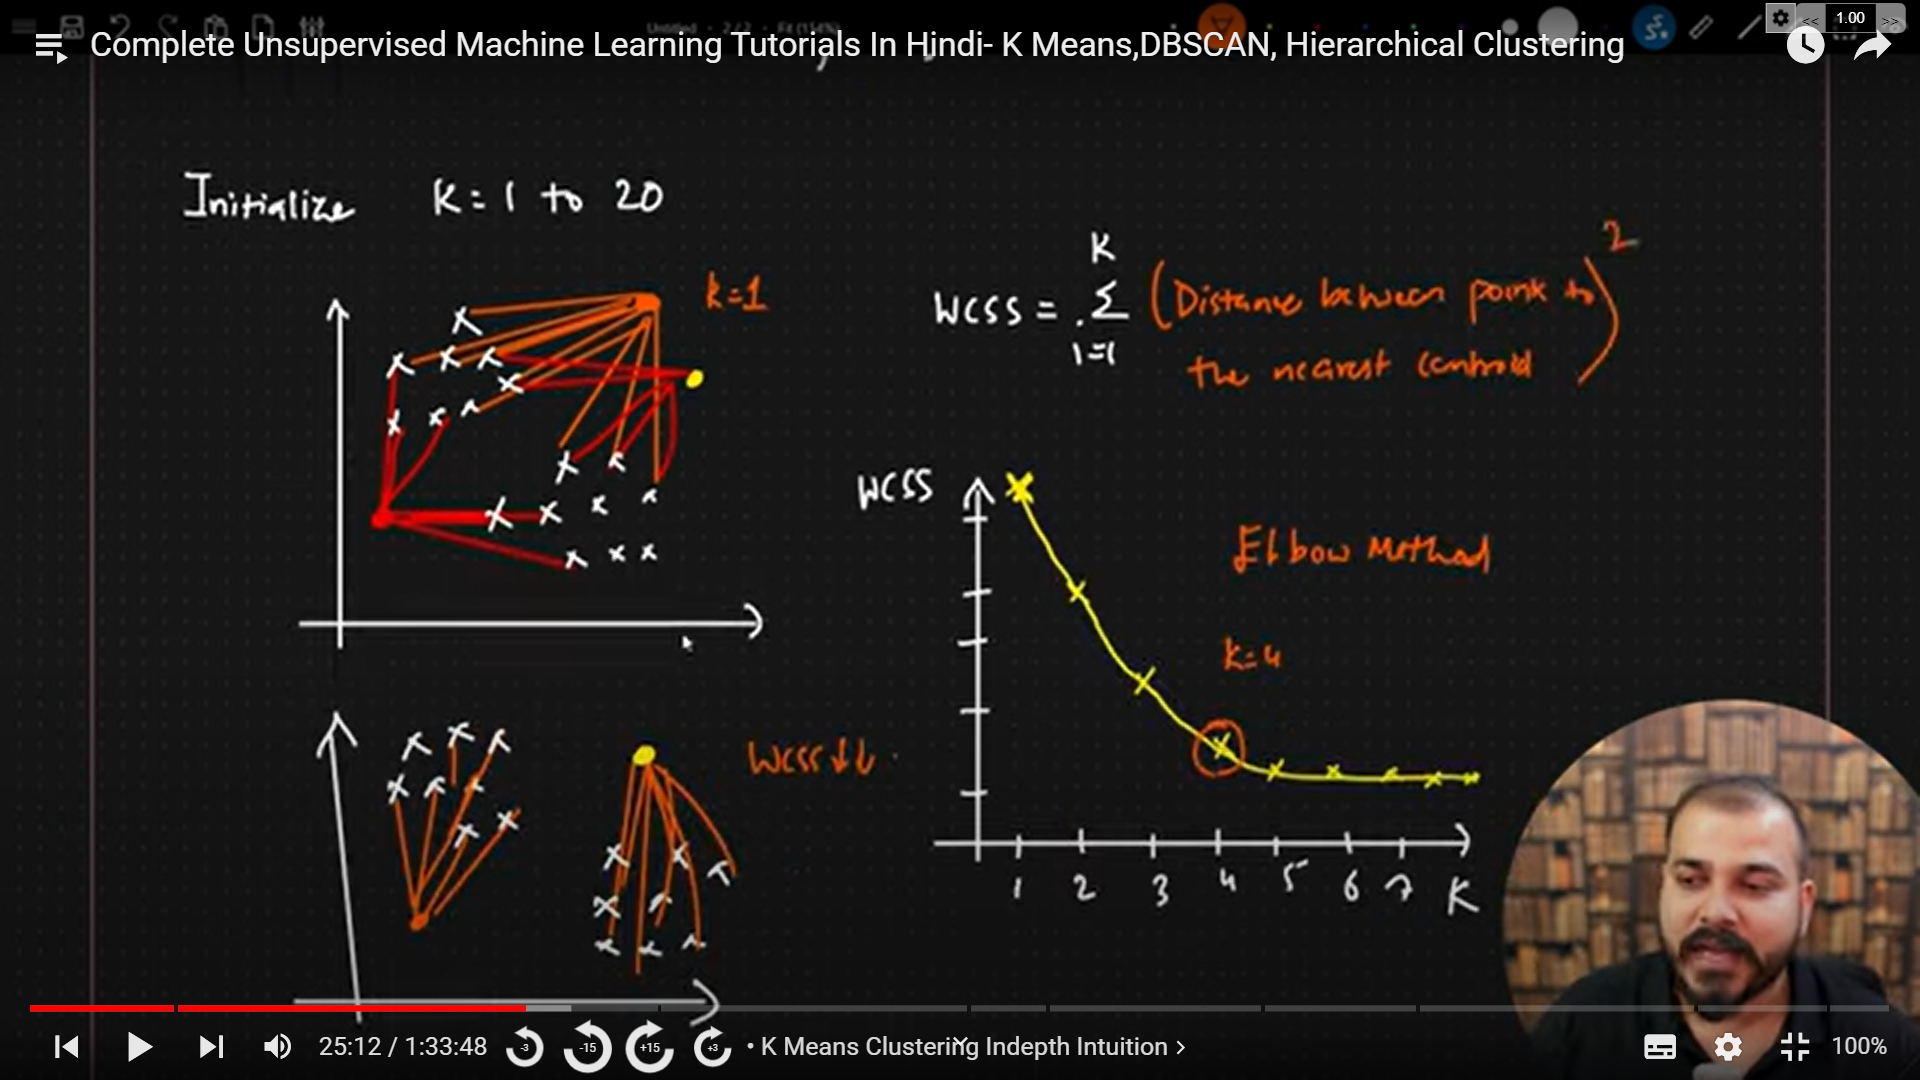 Untitled - 2 / 2 - Fit (114%)
<< 1.00 >>
Complete Unsupervised Machine Learning Tutorials In Hindi- K Means,DBSCAN, Hierarchical Clustering
Initialize K = 1 to 20
k=1
K
WCSS = Σ (Distance between point to the nearest centroid)²
i=1
WCSS
Elbow Method
k=4
WCSS↓↓
1 2 3 4 5 6 7 K
25:12 / 1:33:48 -3 -15 +15 +3 • K Means Clustering Indepth Intuition > 100%